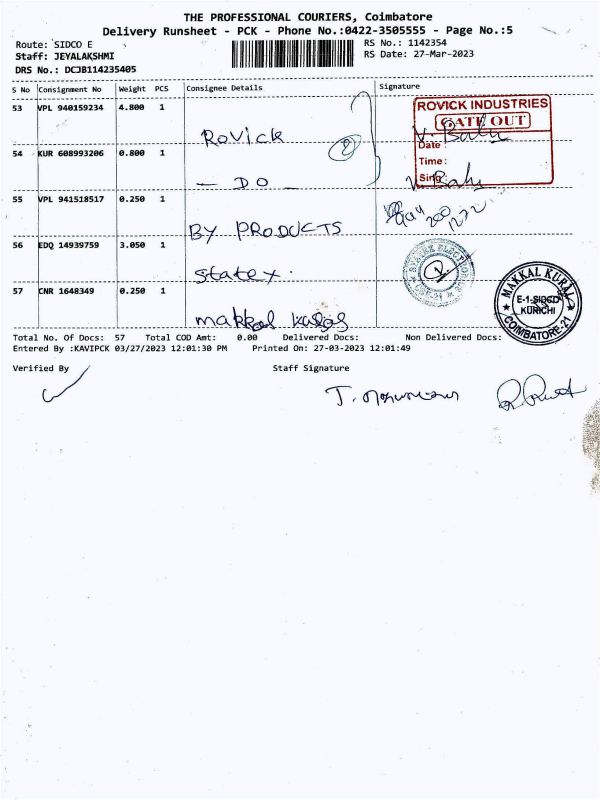 THE PROFESSIONAL COURIERS, Coimbatore
Delivery Runsheet - PCK - Phone No.:0422-3505555 - Page No.:5
Route: SIDCO E
RS No.: 1142354
Staff: JEYALAKSHMI
RS Date: 27-Mar-2023
DRS No.: DCJB114235405
S No Consignment No Weight PCS Consignee Details Signature
53 VPL 940159234 4.800 1
ROVICK INDUSTRIES
GATE OUT
Rovick
2
V. Balu
Date
54 KUR 608993206 0.800 1
Time:
Sing
— DO —
V. Balu
55 VPL 941518517 0.250 1
BY PRODUCTS
56 EDQ 14939759 3.050 1
statex.
MAKKAL KURAL
E-1-SIDCO
KURICHI
COIMBATORE-21
57 CNR 1648349 0.250 1
makkal
Total No. Of Docs: 57 Total COD Amt: 0.00 Delivered Docs: Non Delivered Docs:
Entered By :KAVIPCK 03/27/2023 12:01:30 PM Printed On: 27-03-2023 12:01:49
Verified By Staff Signature